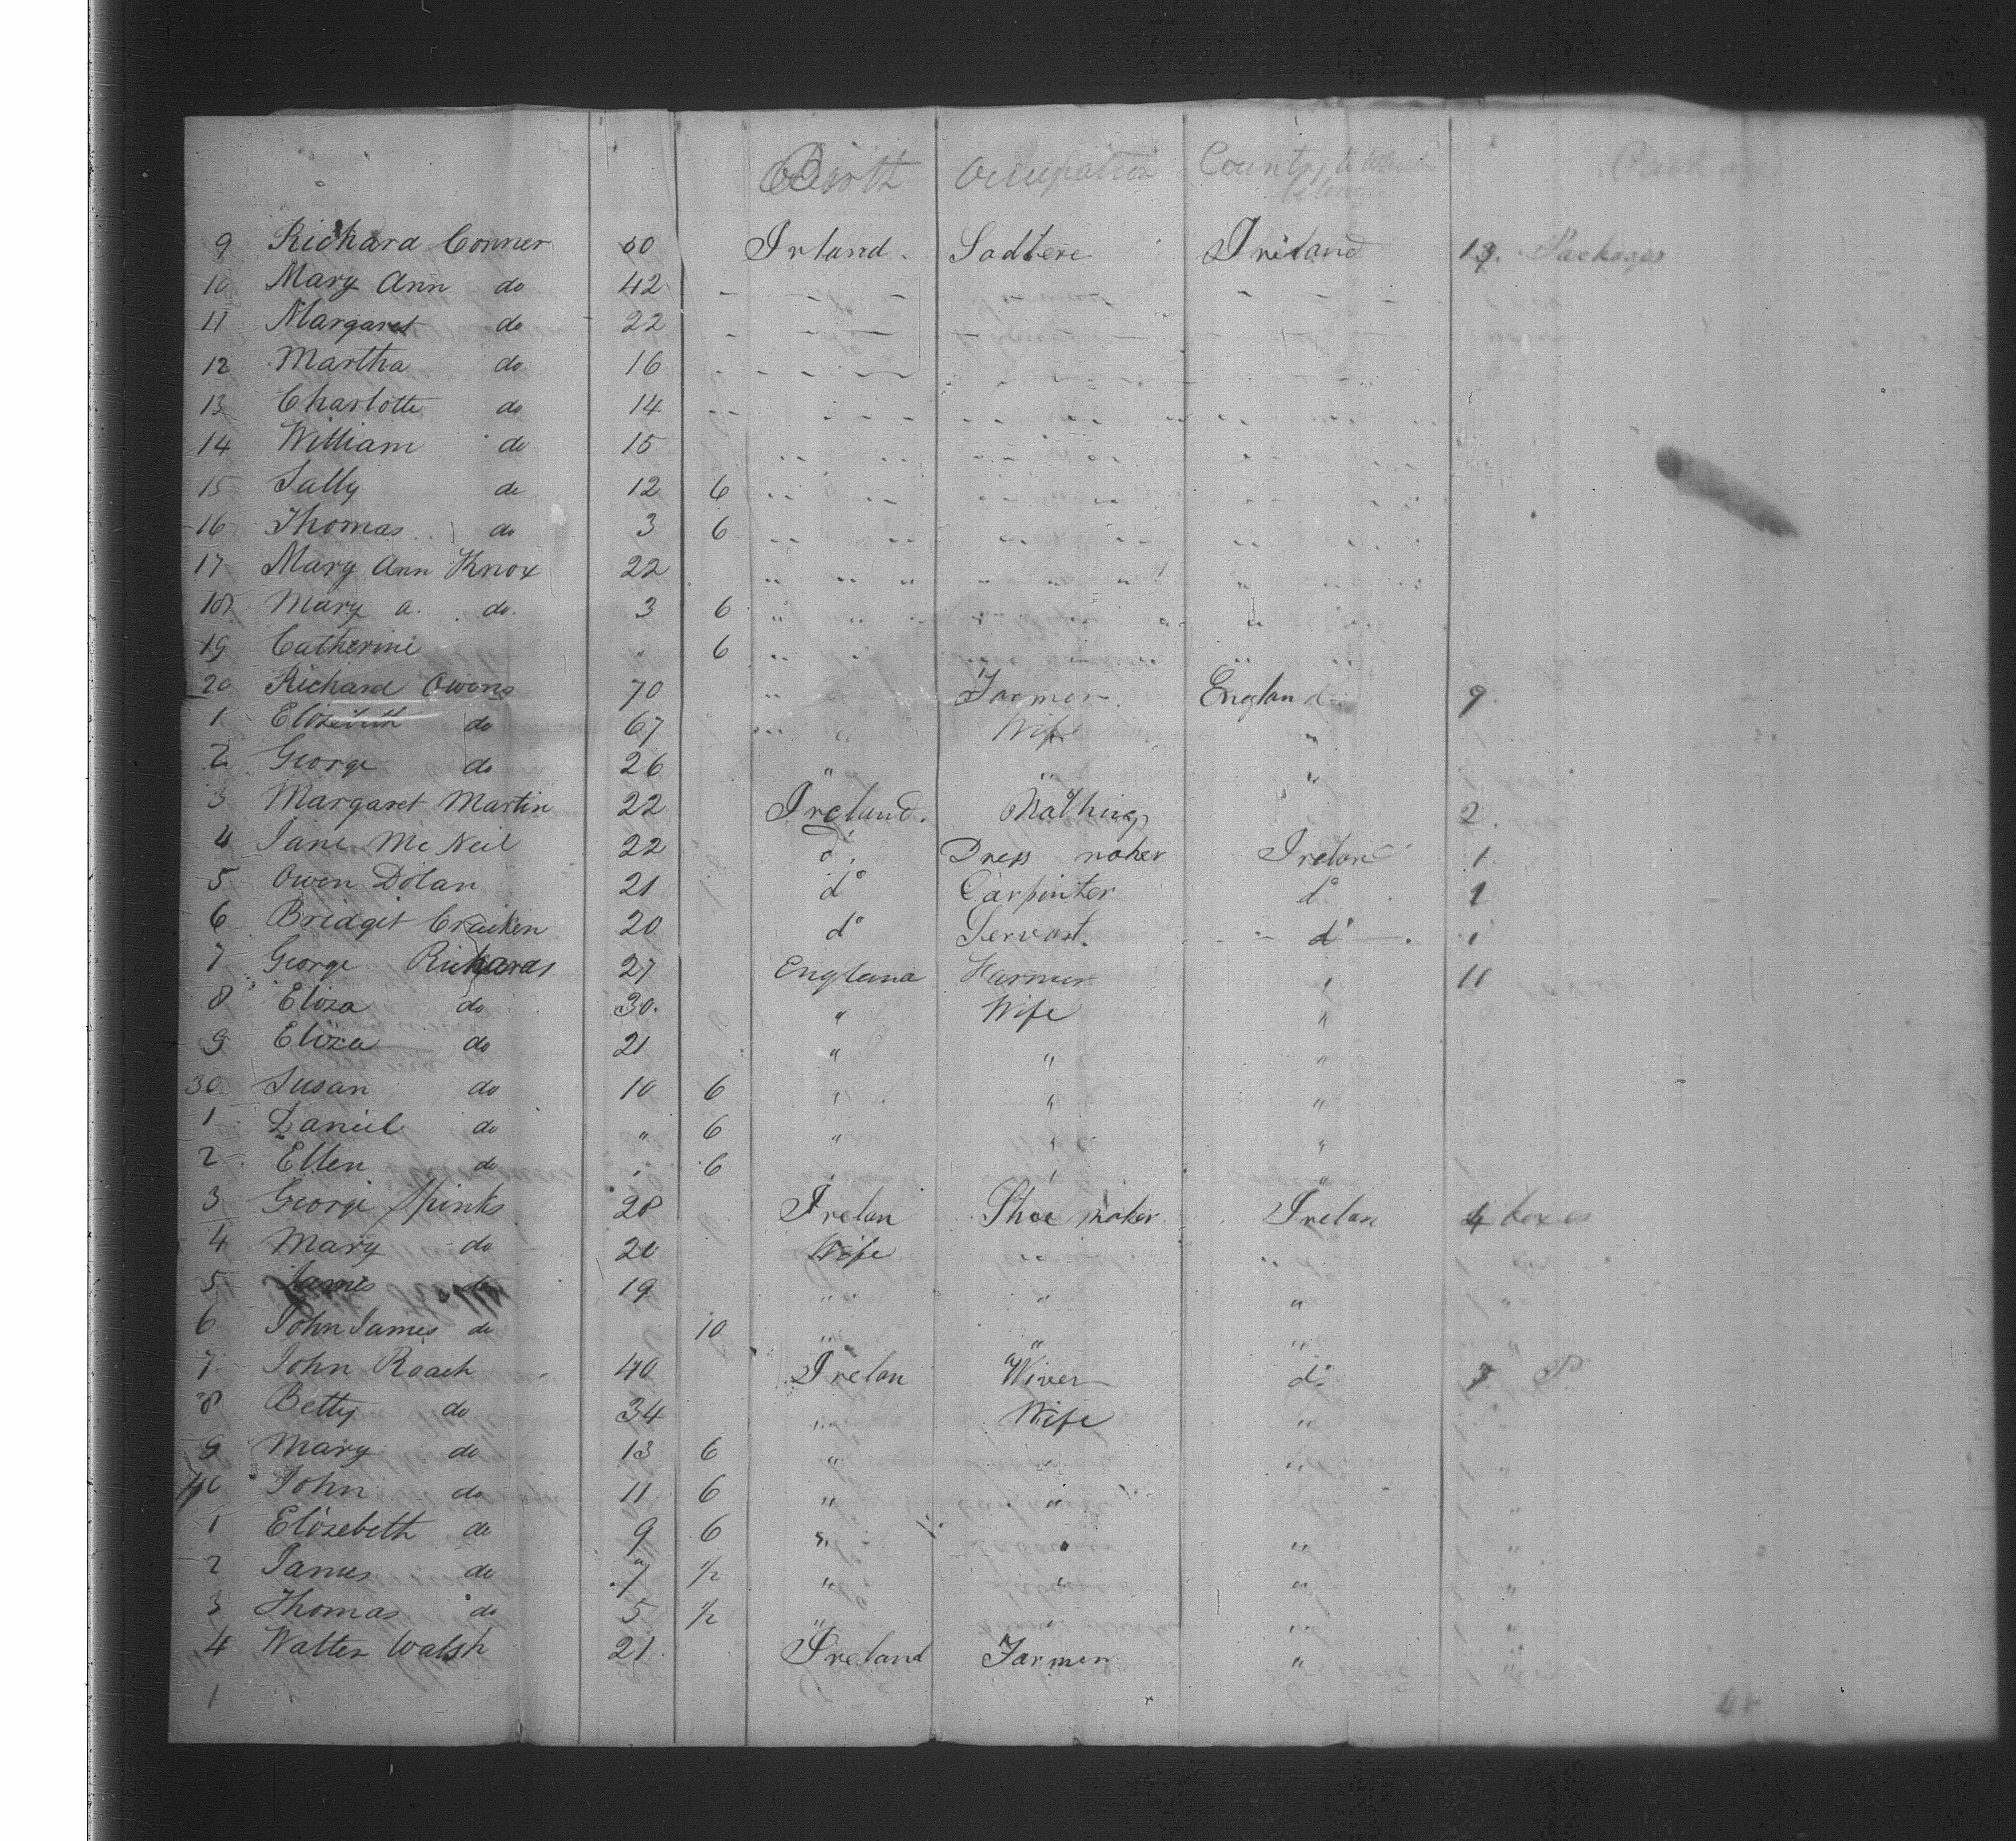 Birth Occupation Country to Which
belong
9 Richard Conner 50 Irland. Sadlere Ireland 13. Packages
10 Mary Ann do 42 - - - - - -
11 Margaret do 22 - - - - - -
12 Martha do 16 - - - - - -
13 Charlotte do 14 " " " " " "
14 William do 15 " " " " " "
15 Sally do 12 6 " " " " " "
16 Thomas do 3 6 " " " " " "
17 Mary Ann Knox 22 " " " " " "
18 Mary a. do. 3 6 " " " " " "
19 Catherine " 6 " " " " " "
20 Richard Owens 70 " Farmer. England 9.
1 Elizebeth do 67 " Wife "
2 George do 26 " " "
3 Margaret Martin 22 Ireland. Nothing 2.
4 Jane Mc Neil 22 do. Dress maker Irelan 1
5 Owen Dolan 21 do Carpinter do 1
6 Bridget Craiken 20 do Servant. do 1
7 George Richards 27 Englana Farmer " 11
8 Eliza do 30. " Wife "
9 Eliza do 21 " " "
30 Susan do 10 6 " " "
1 Daniel do " 6 " " "
2 Ellen do " 6 " " "
3 George Spinks 28 Irelan Shoe maker Irelan 4 boxes
4 Mary do 20 Wife "
5 James do 19 " " "
6 John James do 10 " " "
7 John Roach 40 Irelan Wiver do 7 P.
8 Betty do 34 " Wife "
9 Mary do 13 6 " " "
40 John do 11 6 " " "
1 Elizebeth do 9 6 " " "
2 James do 7 1/2 " " "
3 Thomas do 5 1/2 " " "
4 Walter Walsh 21 Ireland Farmer "
1